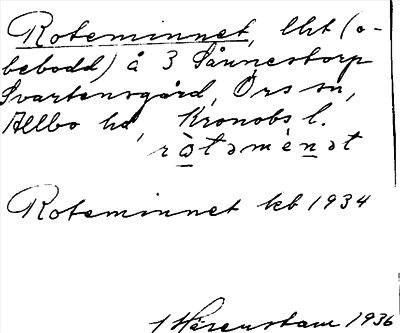 Roteminnet, lht (o-
bebodd) å 3 Sånnestorp
Svartensgård, Örs sn,
Allbo hd, Kronobs l.
rò̠təmèn̠ət
Roteminnet kb 1934
1936